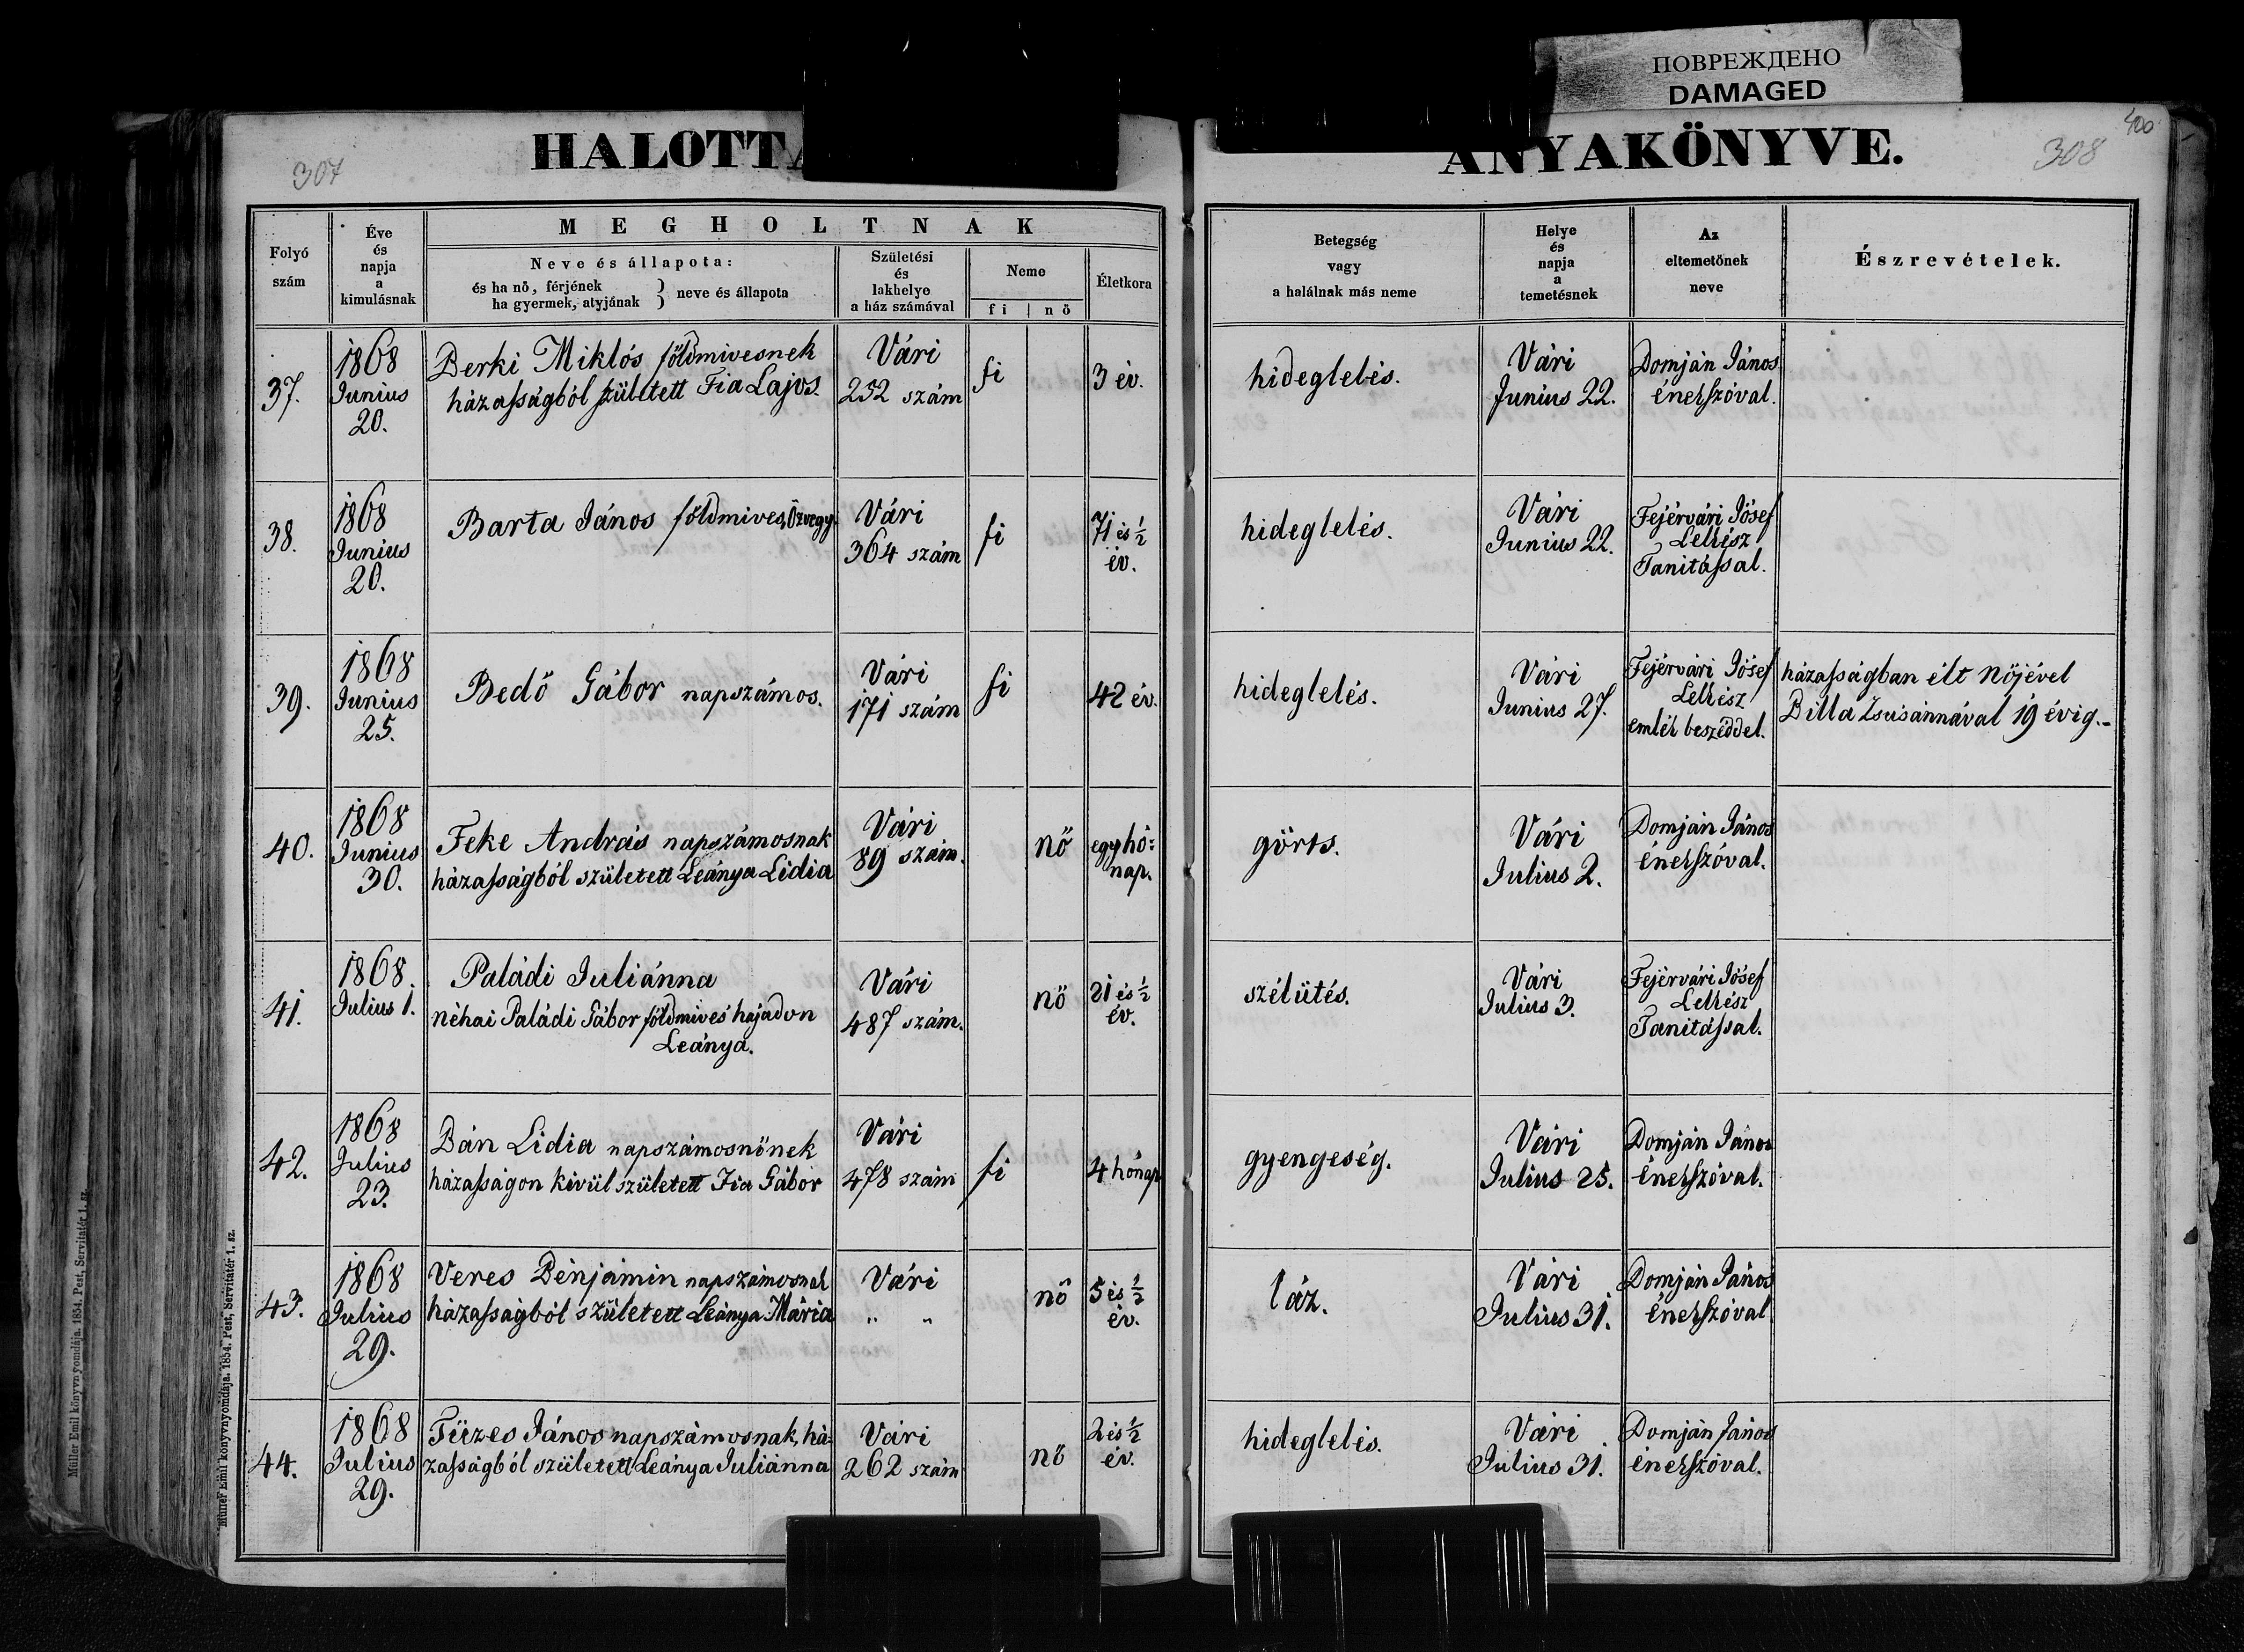 ПОВРЕЖДЕНО
DAMAGED
307
HALOTTA
ANYAKÖNYVE.
308
400
Folyó
szám
Éve
és
napja
a
kimulásnak
MEGHOLTNAK
Neve és állapota:
és ha nő, férjének
ha gyermek, atyjának } neve és állapota
Születési
és
lakhelye
a ház számával
Neme
fi | nő
Életkora
Betegség
vagy
a halálnak más neme
Helye
és
napja
a
temetésnek
Az
eltemetőnek
neve
Észrevételek.
37.
1868
Junius
20.
Berki Miklós földmivesnek
házasságból született Fia Lajos.
Vári
252 szám
fi
3 év.
hideglelés.
Vári
Junius 22.
Domján János
énekszóval.
38.
1868
Junius
20.
Barta János földmives, özvegy.
Vári
364 szám
fi
71 és ½
év.
hideglelés.
Vári
Junius 22.
Fejérvári Jósef
Lelkész
Tanitással.
39.
1868
Junius
25.
Bedő Gábor napszámos.
Vári
171 szám
fi
42 év.
hideglelés.
Vári
Junius 27.
Fejérvári Jósef
Lelkész
emlék beszéddel.
házasságban élt nőjével
Billa Zsusánnával 19 évig.-
40.
1868
Junius
30.
Feke András napszámosnak
házasságból született Leánya Lidia
Vári
89 szám.
nő
egy hó:
nap.
görts.
Vári
Julius 2.
Domján János
énekszóval.
41.
1868.
Julius 1.
Paládi Juliánna
néhai Paládi Gábor földmives hajadon
Leánya.
Vári
487 szám.
nő
21 és ½
év.
szélütés.
Vári
Julius 3.
Fejérvári Jósef
Lelkész
Tanitással.
42.
1868
Julius
23.
Bán Lidia napszámosnőnek
házasságon kivül született Fia Gábor
Vári
478 szám
fi
4 hónap
gyengeség.
Vári
Julius 25.
Domján János
énekszóval.
43.
1868
Julius
29.
Veres Bénjámin napszámosnak
házasságból született Leánya Mária
Vári
" "
nő
5 és ½
év.
láz.
Vári
Julius 31.
Domján János
énekszóval
44.
1868
Julius
29.
Füzes János napszámosnak, há-
zasságból született Leánya Juliánna
Vári
262 szám
nő
2 és ½
év.
hideglelés.
Vári
Julius 31.
Domján János
énekszóval.
Müller Emil könyvnyomdája. 1854. Pest, Servitatér 1. sz.
Müller Emil könyvnyomdája. 1854. Pest, Servitatér 1. sz.